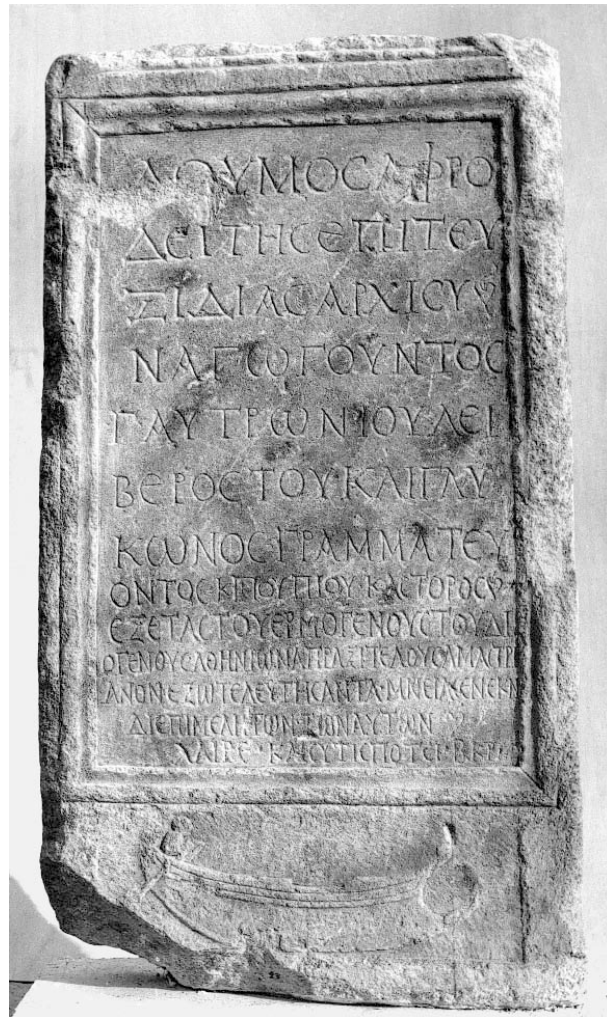 ΔΟΥΜΟϹΑΦΡΟ
ΔΕΙΤΗϹΕΠΙΤΕΥ
ΞΙΔΙΑϹΑΡΧΙϹΥ
ΝΑΓΩΓΟΥΝΤΟϹ
ΓΑΥΤΡΩΝΙΟΥΛΕΙ
ΒΕΡΟϹΤΟΥΚΑΙΓΛΥ
ΚΩΝΟϹΓΡΑΜΜΑΤΕΥ
ΟΝΤΟϹΚΠΟΥΠΙΟΥΚΑϹΤΟΡΟϹ
ΕΞΕΤΑϹΤΟΥΕΡΜΟΓΕΝΟΥϹΤΟΥΔΙ
ΟΓΕΝΟΥϹΑΘΗΝΙΩΝΑΠΡΑΞΙΤΕΛΟΥϹΑΜΑϹΤΡΙ
ΑΝΟΝΕΞΩΤΕΛΕΥΤΗϹΑΝΤΑ·ΜΝΕΙΑϹΕΝΕΚΕΝ
ΔΙΕΠΙΜΕΛΗΤΩΝΤΩΝΑΥΤΩΝ
ΧΑΙΡΕ·ΚΑΙϹΥΤΙϹΠΟΤΕΙ·